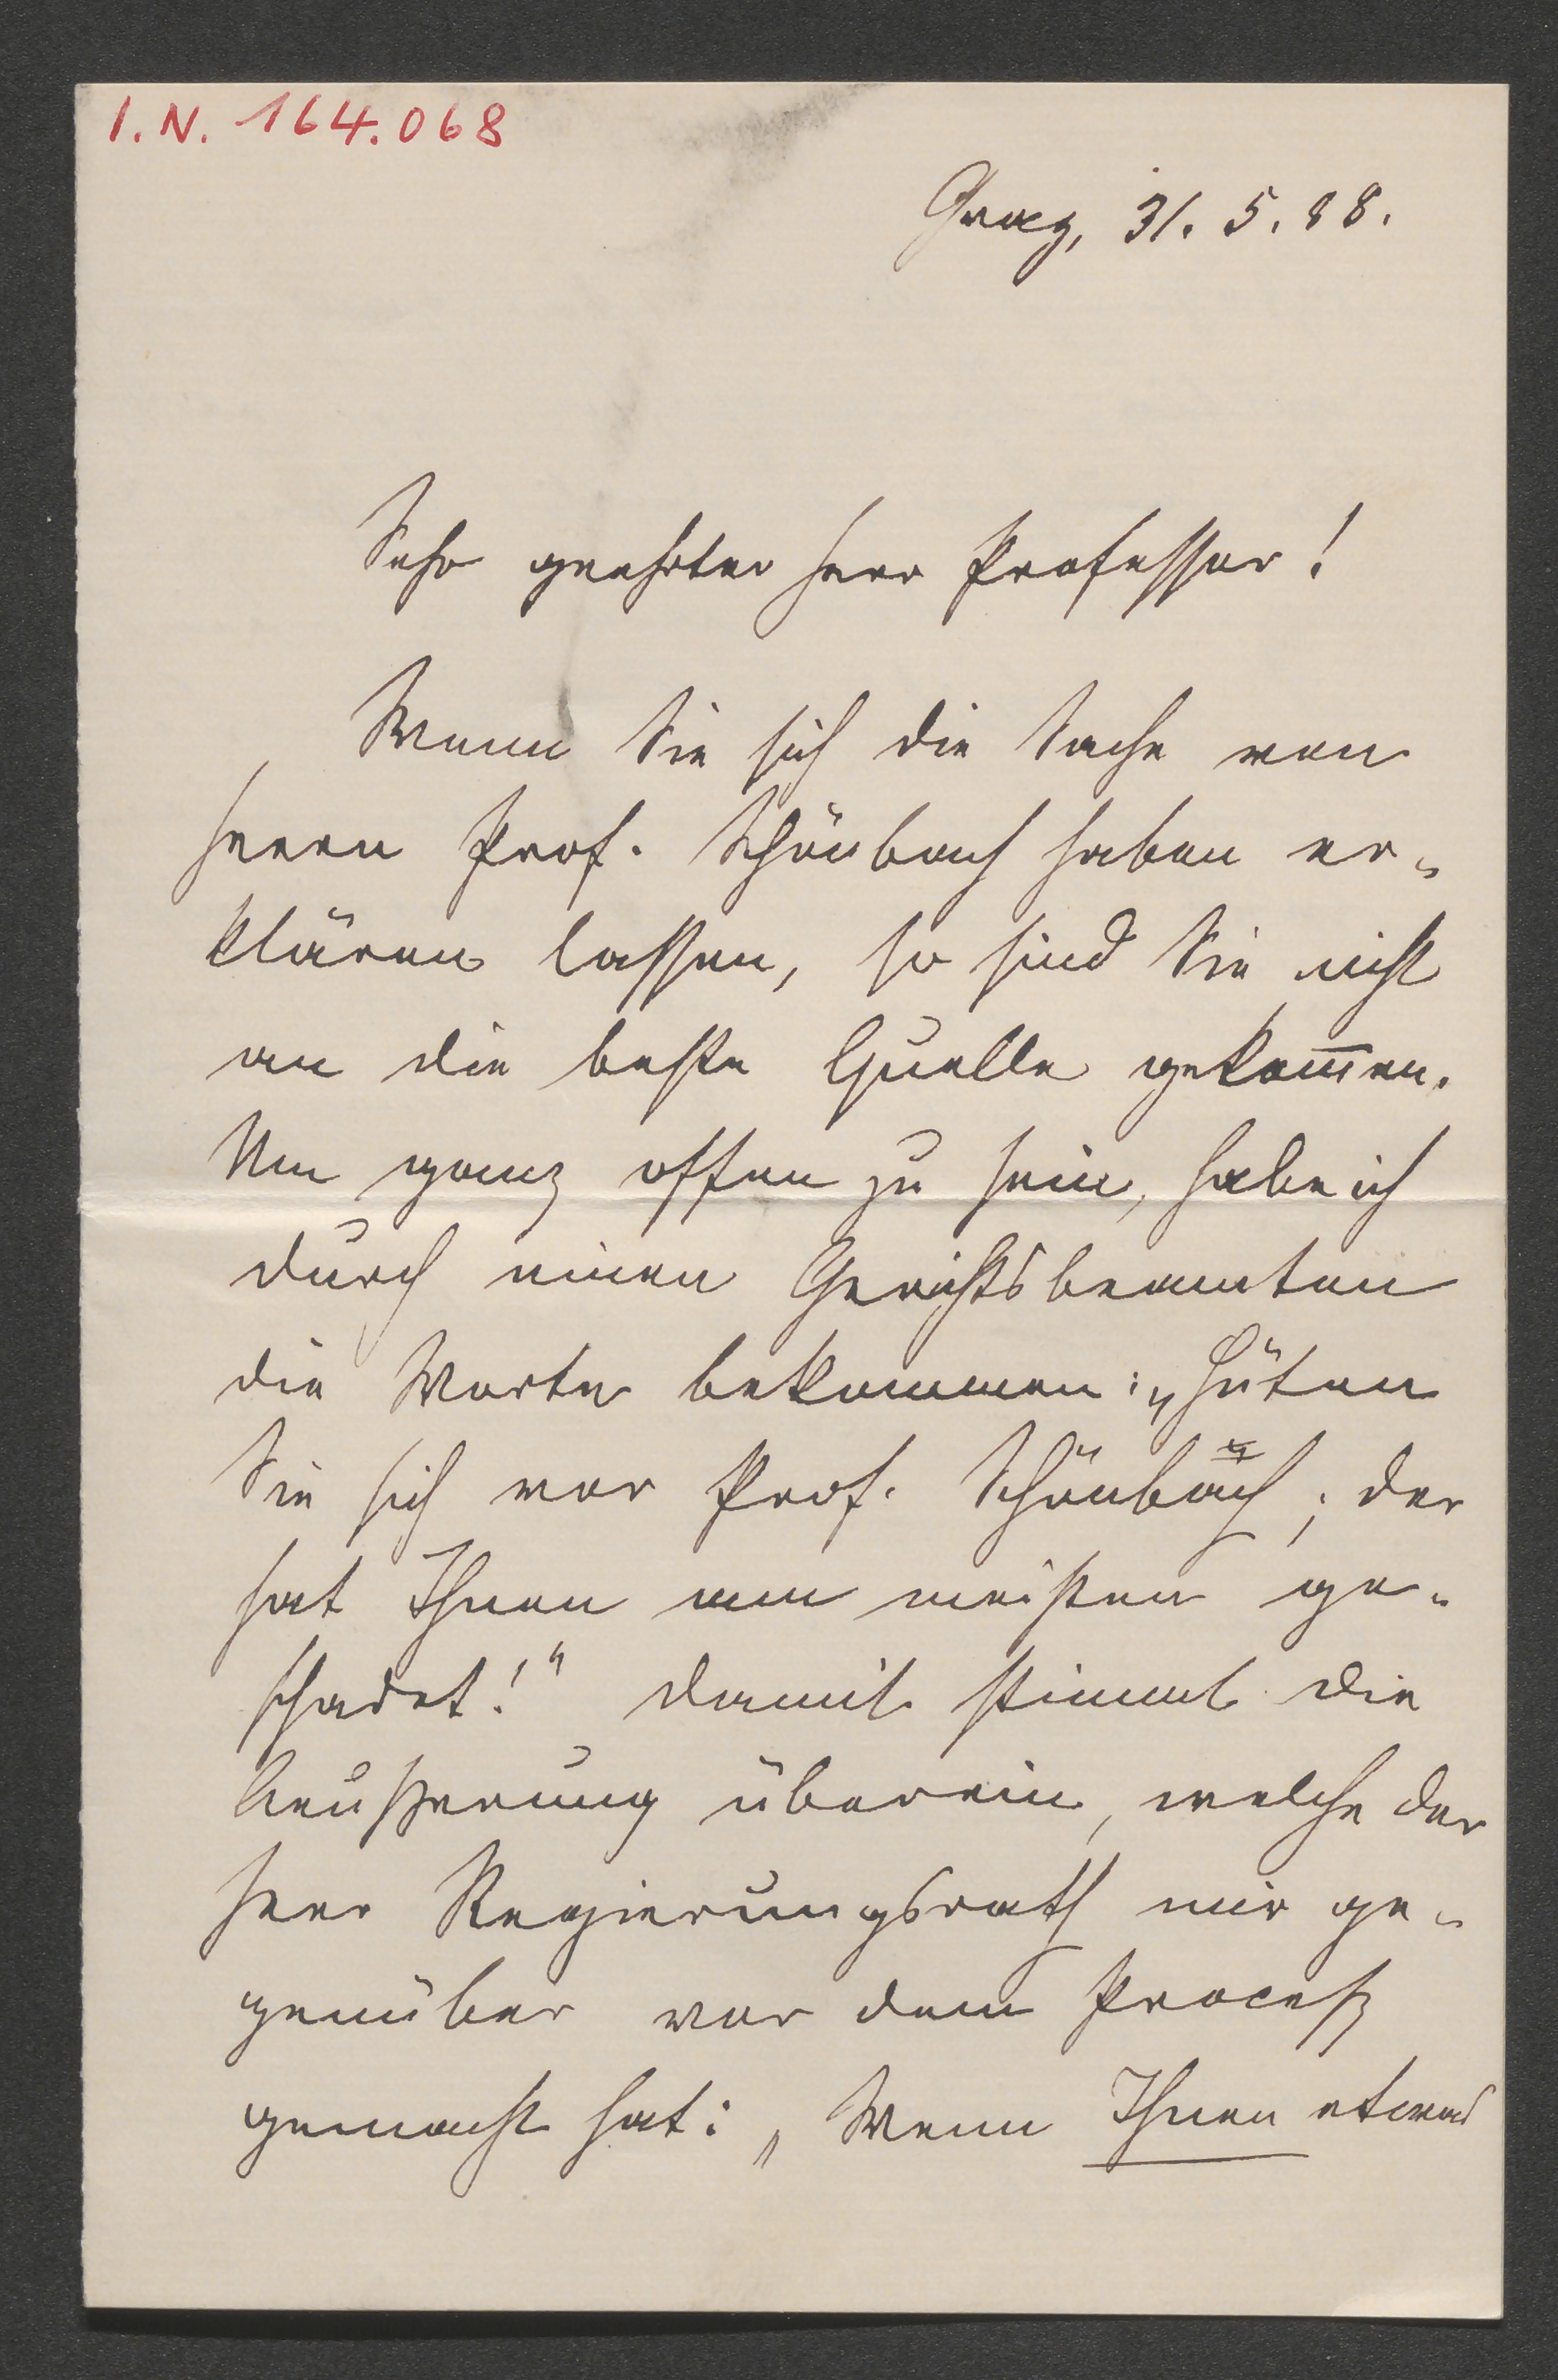 I.N. 164.068
Graz, 31. 5. 88.
Sehr geehrter Herr Professor!
Wenn Sie sich die Sache von
Herrn Prof. Schönbach haben er-
klären lassen, so sind Sie nicht
an die beste Quelle gekom̅en.
Um ganz offen zu sein, habe ich
durch einen Gerichtsbeamten
die Worte bekommen: „Hüten
Sie sich vor Prof. Schönbach; der
hat Ihnen am meisten ge-
schadet!“ Damit stimmt die
Aeußerung überein, welche der
Herr Regierungsrath mir ge-
genüber vor dem Proceß
gemacht hat: „Wenn Ihnen etwas